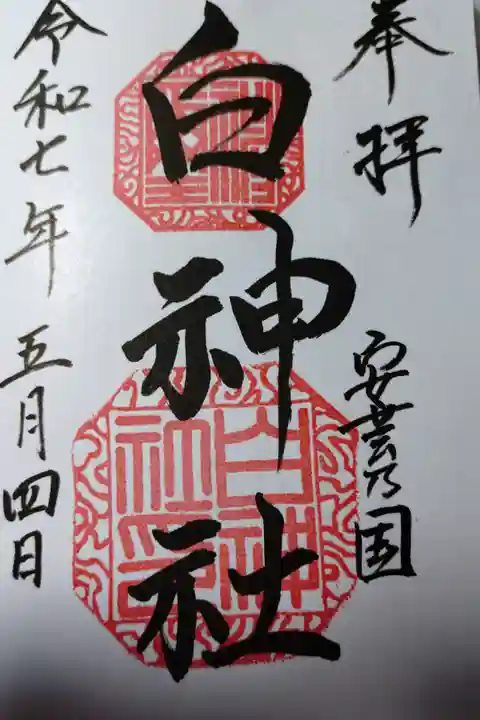 奉拝
安芸乃国
白神社
令和七年五月四日
白神
社印